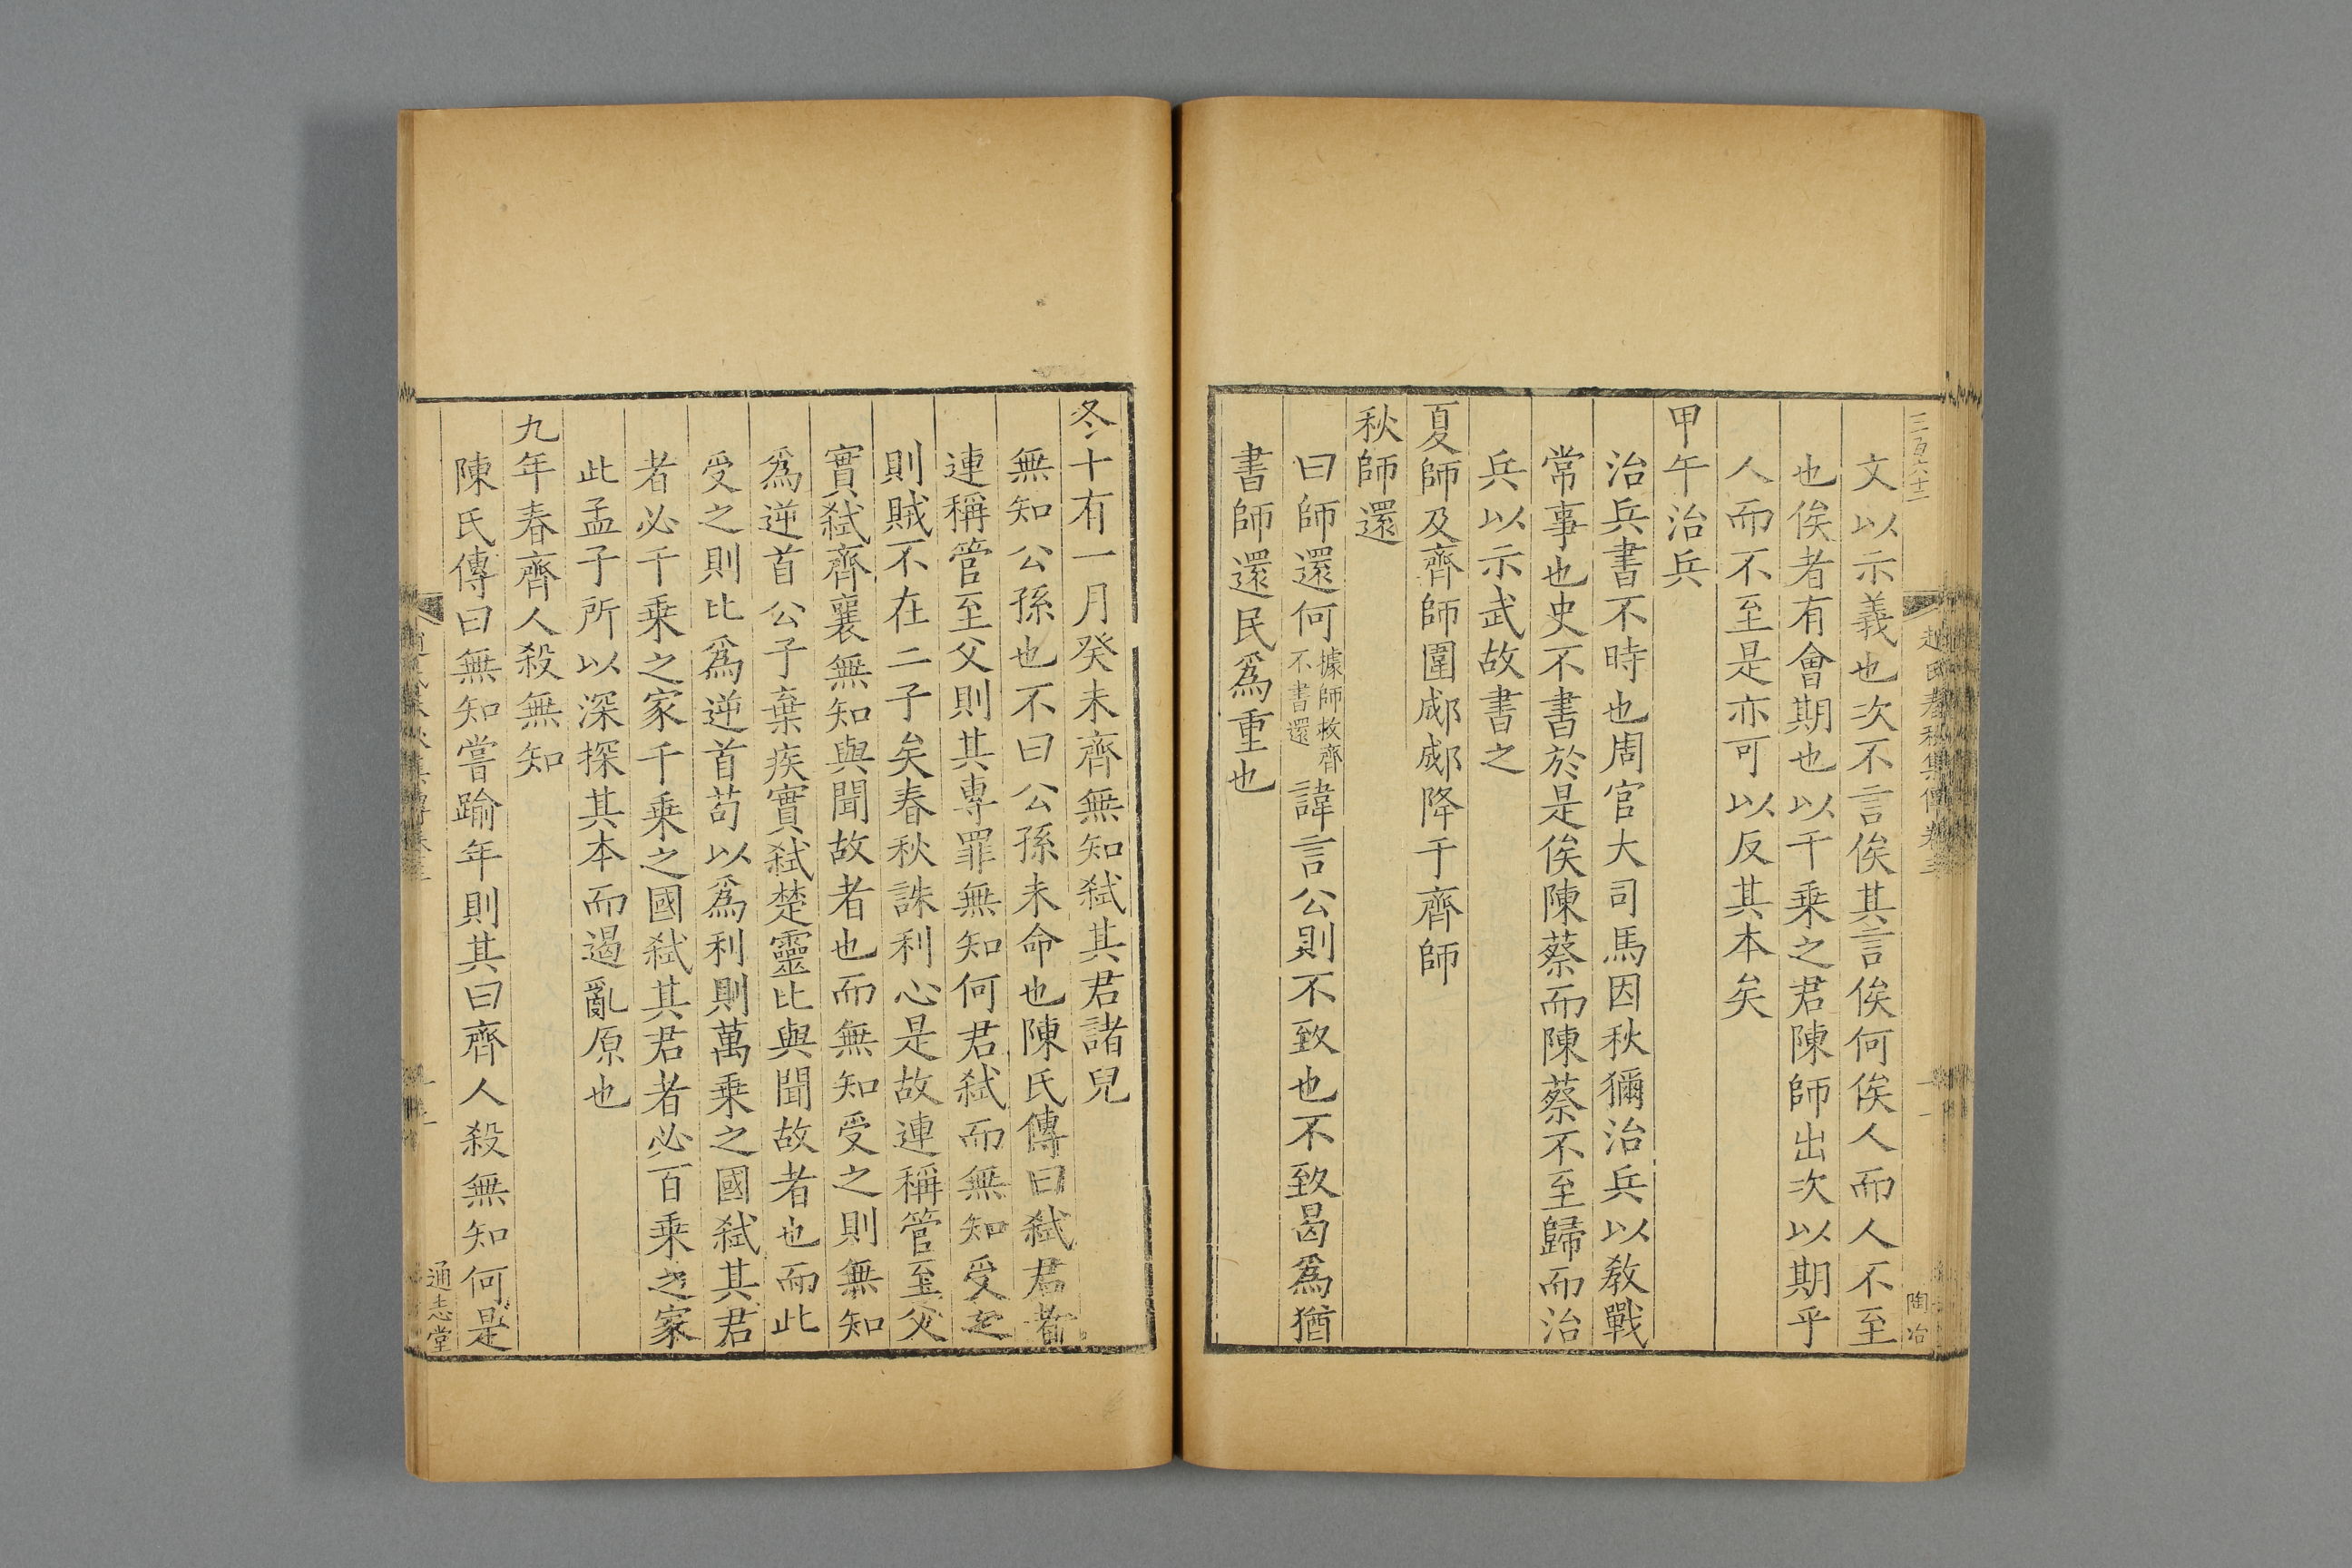 三百六十二
趙氏春秋集傳卷三
陶冶
文以示義也次不言俟其言俟何俟人而人不至
也俟者有會期也以千乗之君陳師出次以期乎
人而不至是亦可以反其本矣
甲午治兵
治兵書不時也周官大司馬因秋獮治兵以敎戰
常事也史不書於是俟陳蔡而陳蔡不至歸而治
兵以示武故書之
夏師及齊師圍郕郕降于齊師
秋師還
曰師還何據師救齊不書還諱言公則不致也不致曷爲猶
書師還民爲重也
冬十有一月癸未齊無知弑其君諸兒
無知公孫也不曰公孫未命也陳氏傳曰弑君者
連稱管至父則其専罪無知何君弑而無知受之
則賊不在二子矣春秋誅利心是故連稱管至父
實弑齊襄無知與聞故者也而無知受之則無知
爲逆首公子棄疾實弑楚靈比與聞故者也而此
受之則比爲逆首苟以爲利則萬乗之國弑其君
者必千乗之家千乗之國弑其君者必百乗之家
此孟子所以深探其本而遏亂原也
九年春齊人殺無知
陳氏傳曰無知嘗踰年則其曰齊人殺無知何是
通志堂